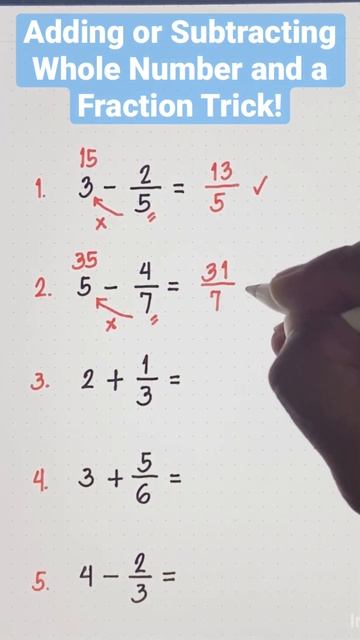 Adding or Subtracting
Whole Number and a
Fraction Trick!
15
1. 3 - 2/5 = 13/5 ✓
x =
35
2. 5 - 4/7 = 31/7
x =
3. 2 + 1/3 =
4. 3 + 5/6 =
5. 4 - 2/3 =